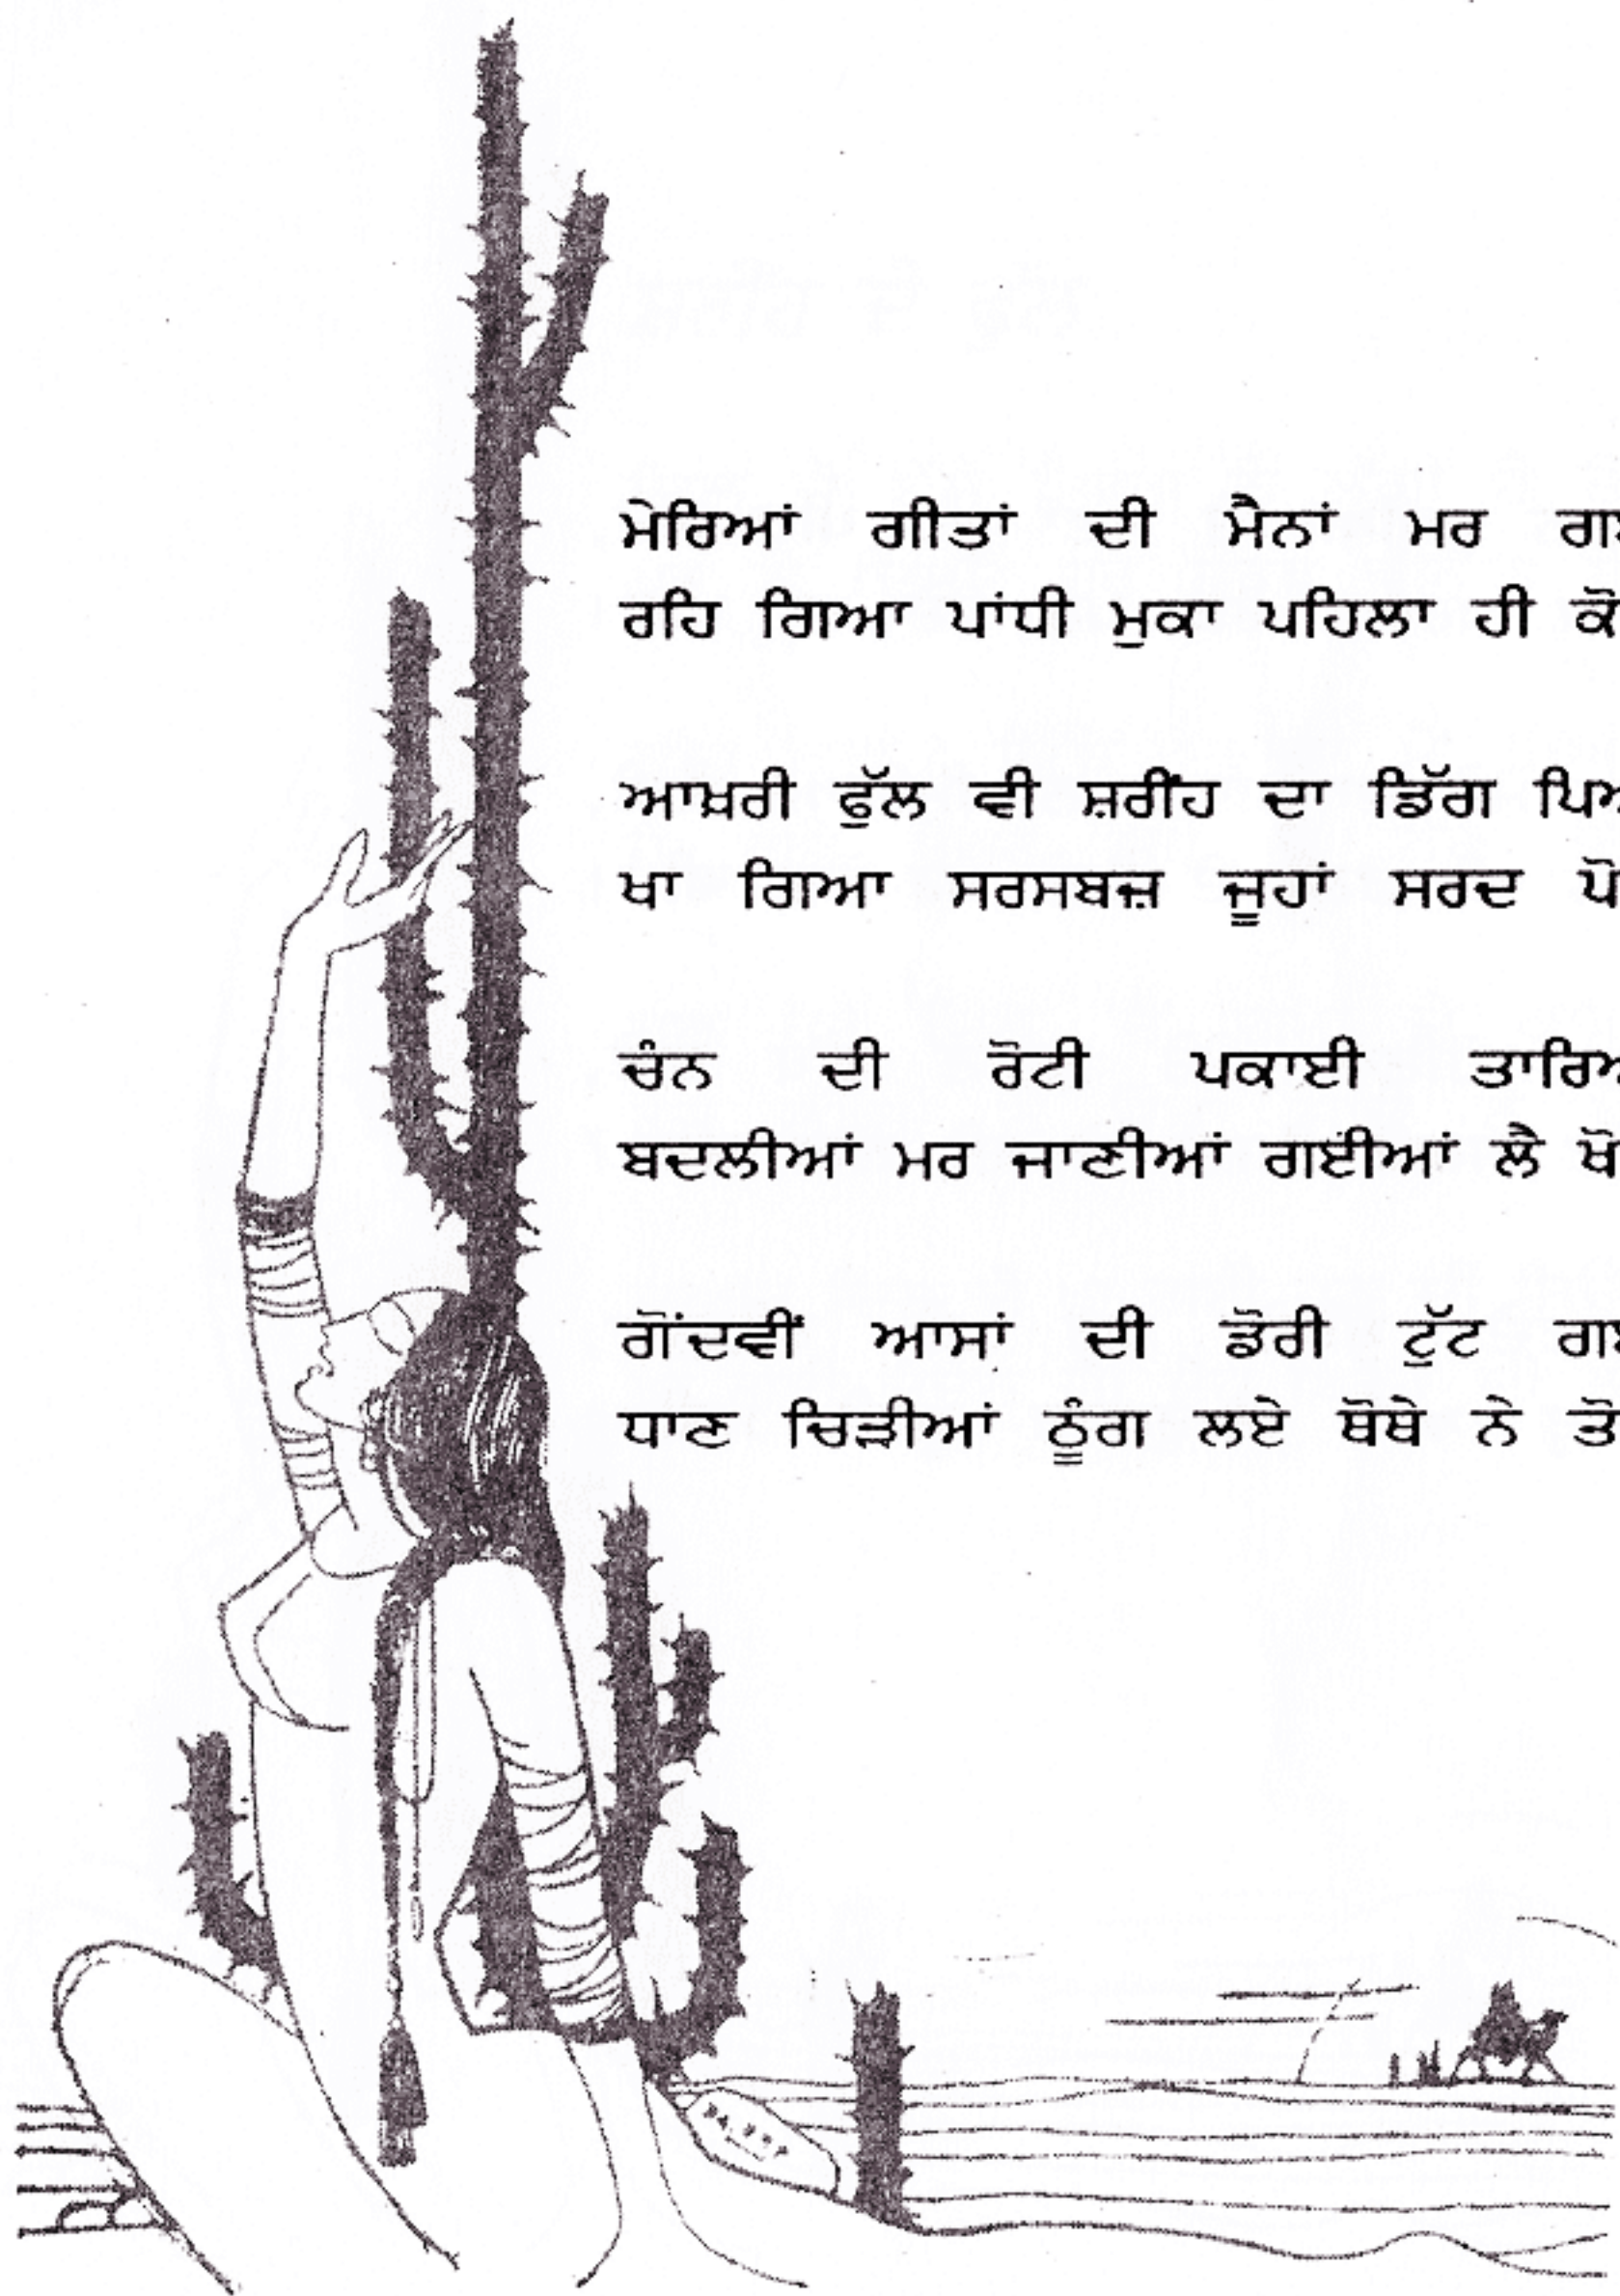 ਮੇਰਿਆਂ ਗੀਤਾਂ ਦੀ ਮੈਨਾਂ ਮਰ
ਰਹਿ ਗਿਆ ਪਾਂਧੀ ਮੁਕਾ ਪਹਿਲਾ ਹੀ
ਆਖ਼ਰੀ ਫੁੱਲ ਵੀ ਸ਼ਰੀਂਹ ਦਾ ਡਿੱਗ
ਖਾ ਗਿਆ ਸਰਸਬਜ਼ ਜੂਹਾਂ ਸਰਦ
ਚੰਨ ਦੀ ਰੋਟੀ ਪਕਾਈ
ਬਦਲੀਆਂ ਮਰ ਜਾਣੀਆਂ ਗਈਆਂ ਲੈ
ਗੋਂਦਵੀਂ ਆਸਾਂ ਦੀ ਡੋਰੀ ਟੁੱਟ
ਧਾਣ ਚਿੜੀਆਂ ਠੂੰਗ ਲਏ ਥੋਥੇ ਨੇ